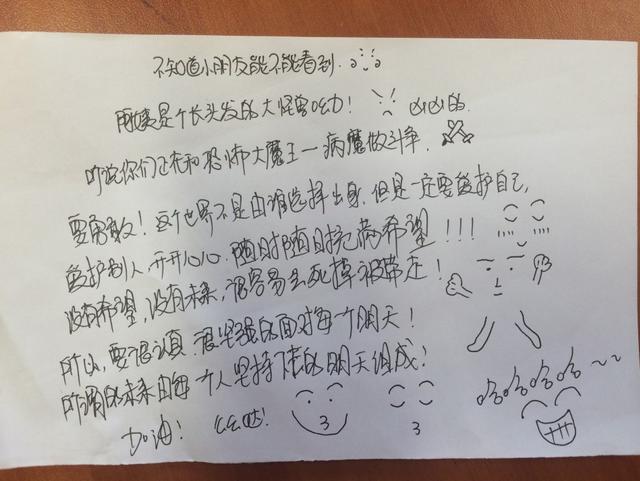 不知道小朋友能不能看到.
阿姨是个长头发的大怪兽呦! 凶凶的.
听说你们正在和恐怖大魔王—病魔做斗争.
要勇敢! 这个世界不是由谁选择出身. 但是一定要爱护自己,
爱护别人, 开开心心. 随时随时充满希望!!!
没有希望, 没有未来, 很容易会死掉被带走!
所以, 要很认真. 很坚强的面对每一个明天!
所谓的未来由每一个人坚持下去的明天组成!
哈哈哈哈哈~~
加油! 么么哒!